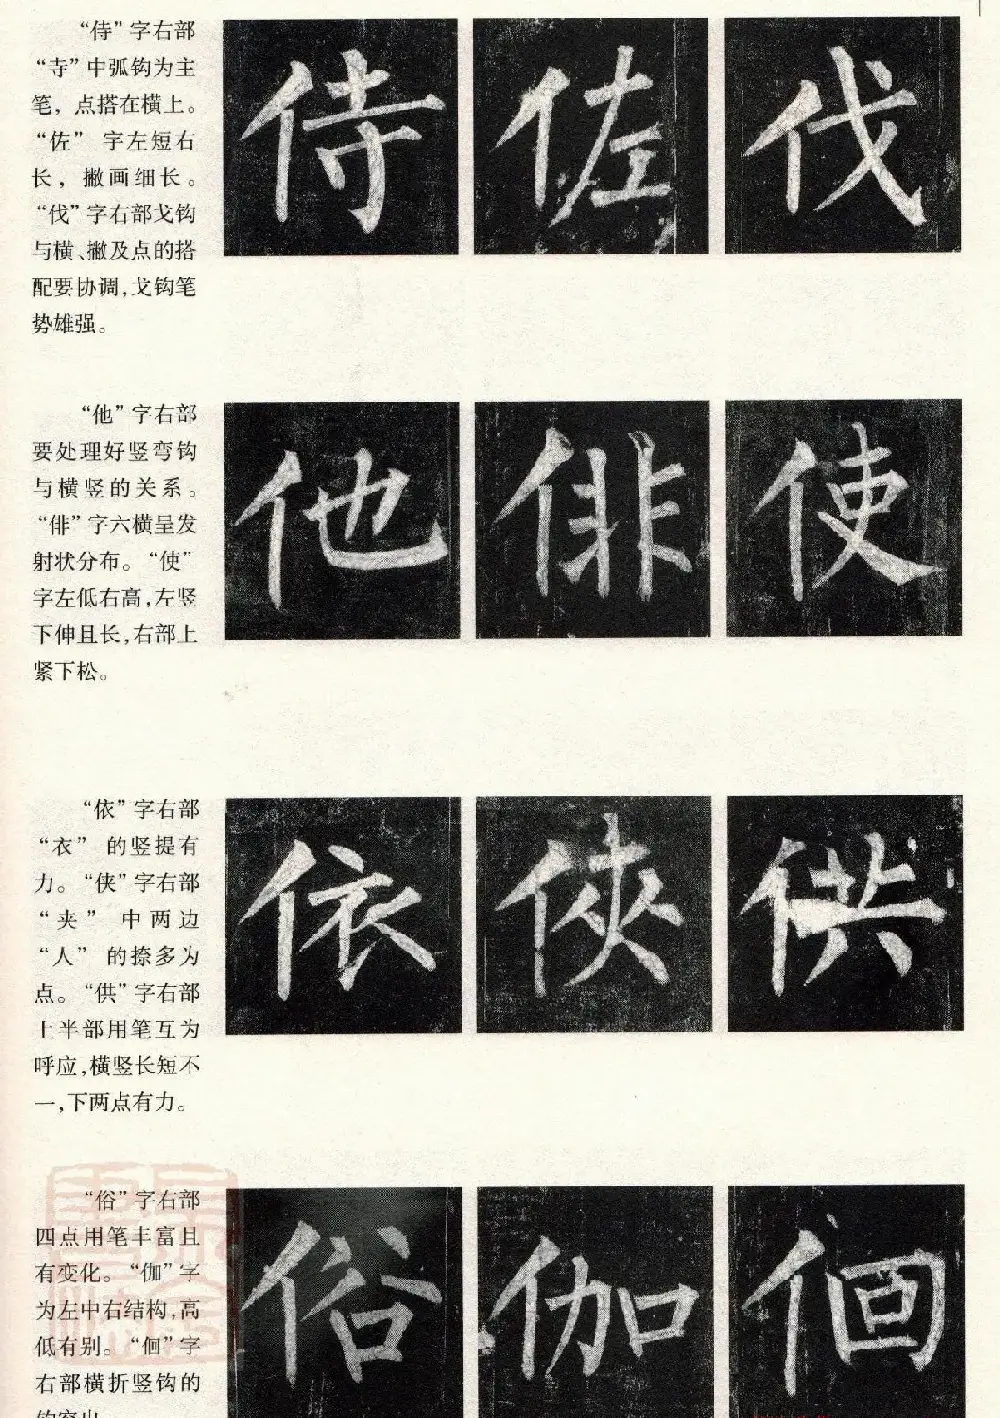 “侍”字右部
“寺”中弧钩为主
笔，点搭在横上。
“佐” 字左短右
长，撇画细长。
“伐”字右部戈钩
与横、撇及点的搭
配要协调，戈钩笔
势雄强。
侍 佐 伐
“他”字右部
要处理好竖弯钩
与横竖的关系。
“俳”字六横呈发
射状分布。“使”
字左低右高，左竖
下伸且长，右部上
紧下松。
他 俳 使
“依”字右部
“衣” 的竖提有
力。“侠”字右部
“夹” 中两边
“人” 的捺多为
点。“供”字右部
上半部用笔互为
呼应，横竖长短不
一，下两点有力。
依 俠 供
“俗”字右部
四点用笔丰富且
有变化。“伽”字
为左中右结构，高
低有别。“佪”字
右部横折竖钩的
俗 伽 佪